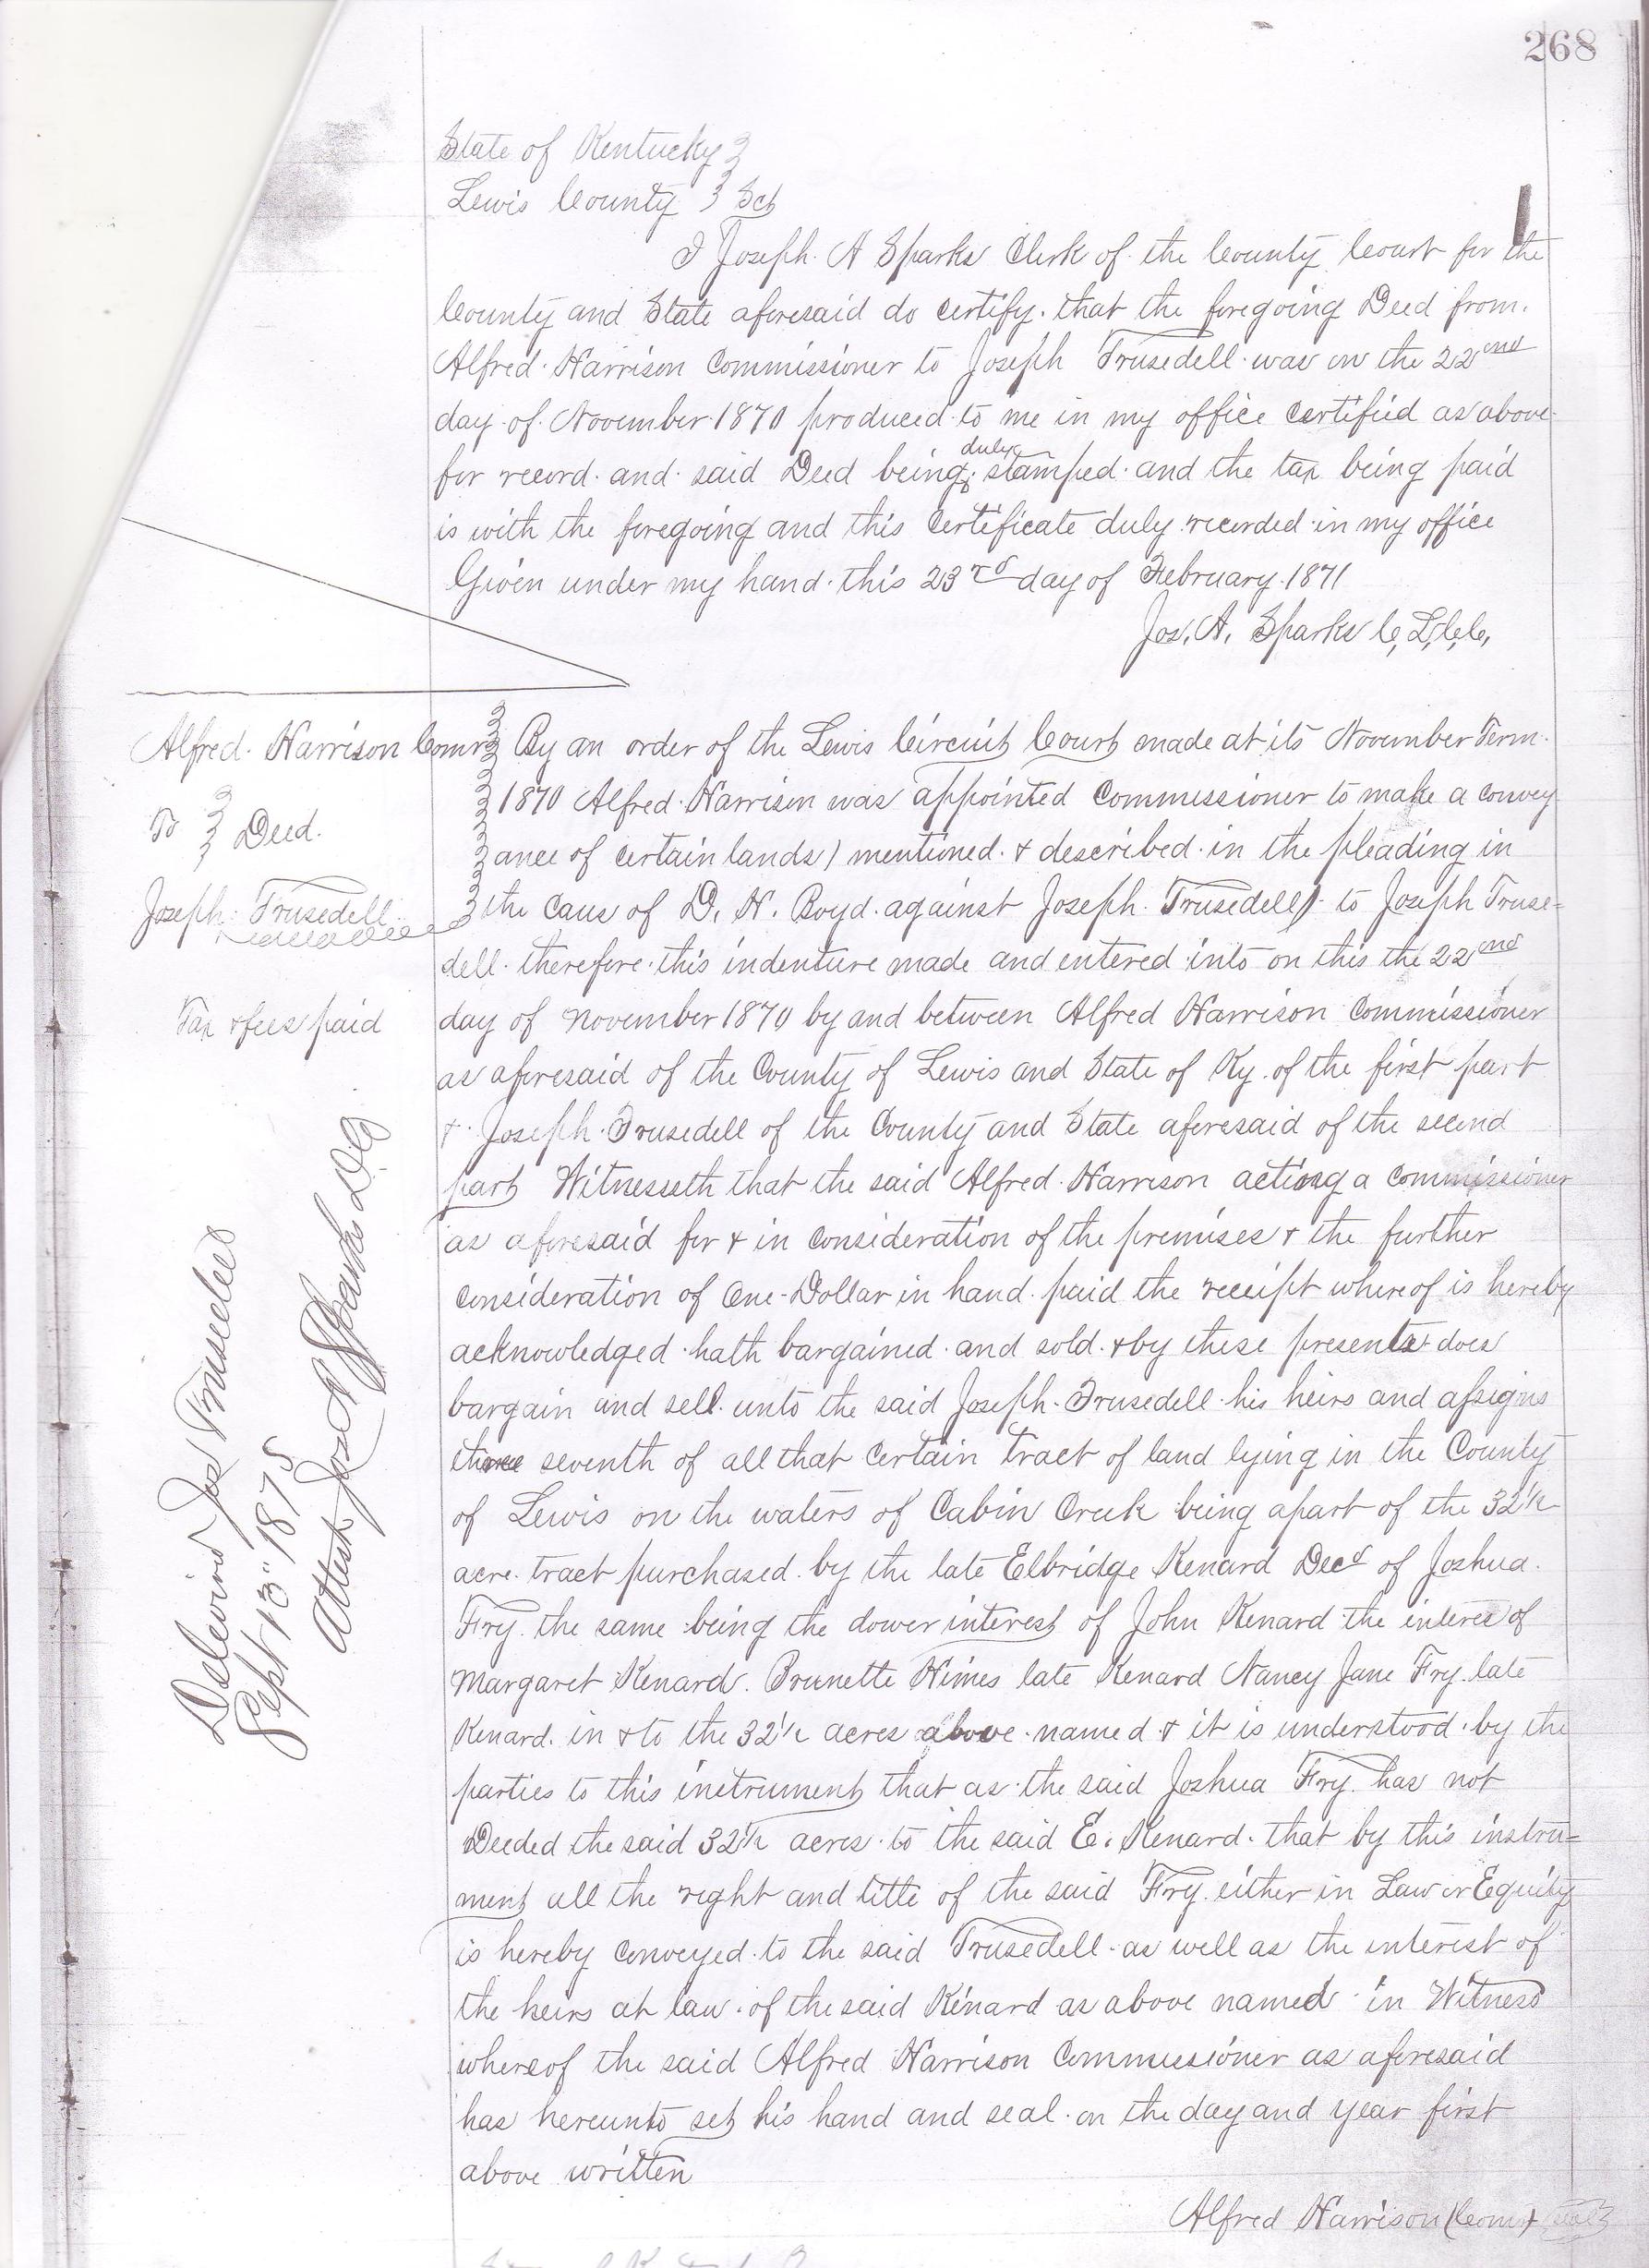 268
State of Kentucky
Lewis County Sct
I Joseph A Sparks Clerk of the County Court for the
County and State aforesaid do certify that the foregoing Deed from
Alfred Harrison Commissioner to Joseph Trusedell was on the 22nd
day of November 1870 produced to me in my office certified as above
for record and said Deed being duly stamped and the tax being paid
is with the foregoing and this certificate duly recorded in my office
Given under my hand this 23rd day of February 1871
Jos. A. Sparks C.L.C.C.
Alfred Harrison Comr
To Deed.
Joseph Trusedell
Tax & fees paid
Delivered Jos Trusedell
Sept 13" 1875
Attest Jos A Sparks
By an order of the Lewis Circuit Court made at its November Term
1870 Alfred Harrison was appointed Commissioner to make a convey
ance of certain lands) mentioned & described in the pleading in
the caus of D. H. Boyd against Joseph Trusedell) to Joseph Truse=
dell therefore this indenture made and entered into on this the 22nd
day of November 1870 by and between Alfred Harrison Commissioner
as aforesaid of the County of Lewis and State of Ky of the first part
& Joseph Trusedell of the County and State aforesaid of the second
part Witnesseth that the said Alfred Harrison acting a commissioner
as aforesaid for & in consideration of the premises & the further
consideration of One Dollar in hand paid the receipt whereof is hereby
acknowledged hath bargained and sold & by these presents does
bargain and sell unto the said Joseph Trusedell his heirs and assigns
three seventh of all that certain tract of land lying in the County
of Lewis on the waters of Cabin Creek being apart of the 32½
acre tract purchased by the late Elbridge Kenard Decd of Joshua
Fry the same being the dower interest of John Kenard the interes of
Margaret Kenard. Brunette Himes late Kenard Nancy Jane Fry late
Kenard. in & to the 32½ acres above named & it is understood by the
parties to this instrument that as the said Joshua Fry has not
Deeded the said 32½ acres to the said E. Kenard that by this instru=
ment all the right and title of the said Fry either in Law or Equity
is hereby conveyed to the said Trusedell as well as the interest of
the heirs at law of the said Kenard as above named in Witness
whereof the said Alfred Harrison Commissioner as aforesaid
has hereunto set his hand and seal on the day and year first
above written
Alfred Harrison (Comr) seal